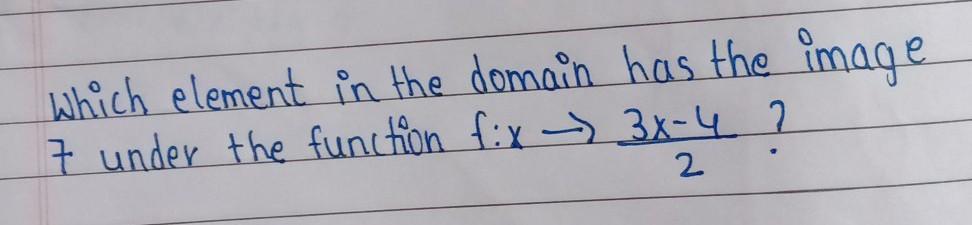 Which element in the domain has the image
7 under the function f:x → \frac{3x-4}{2} ?